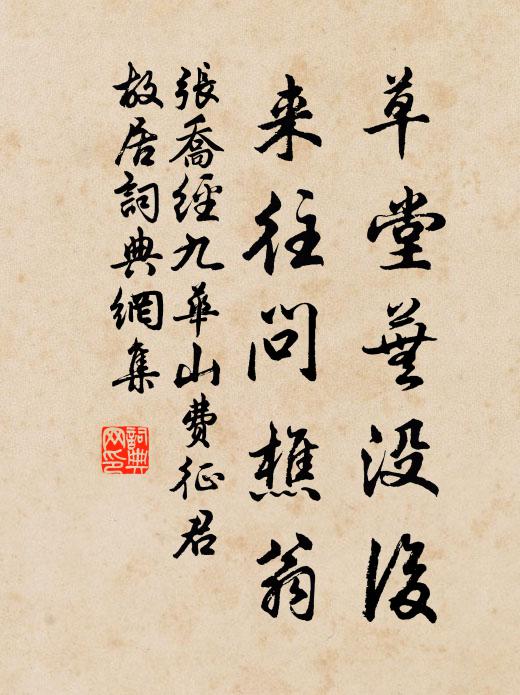 草堂蕪没後
来往問樵翁
張喬經九華山費征君
故居詞典網集
詞典网印